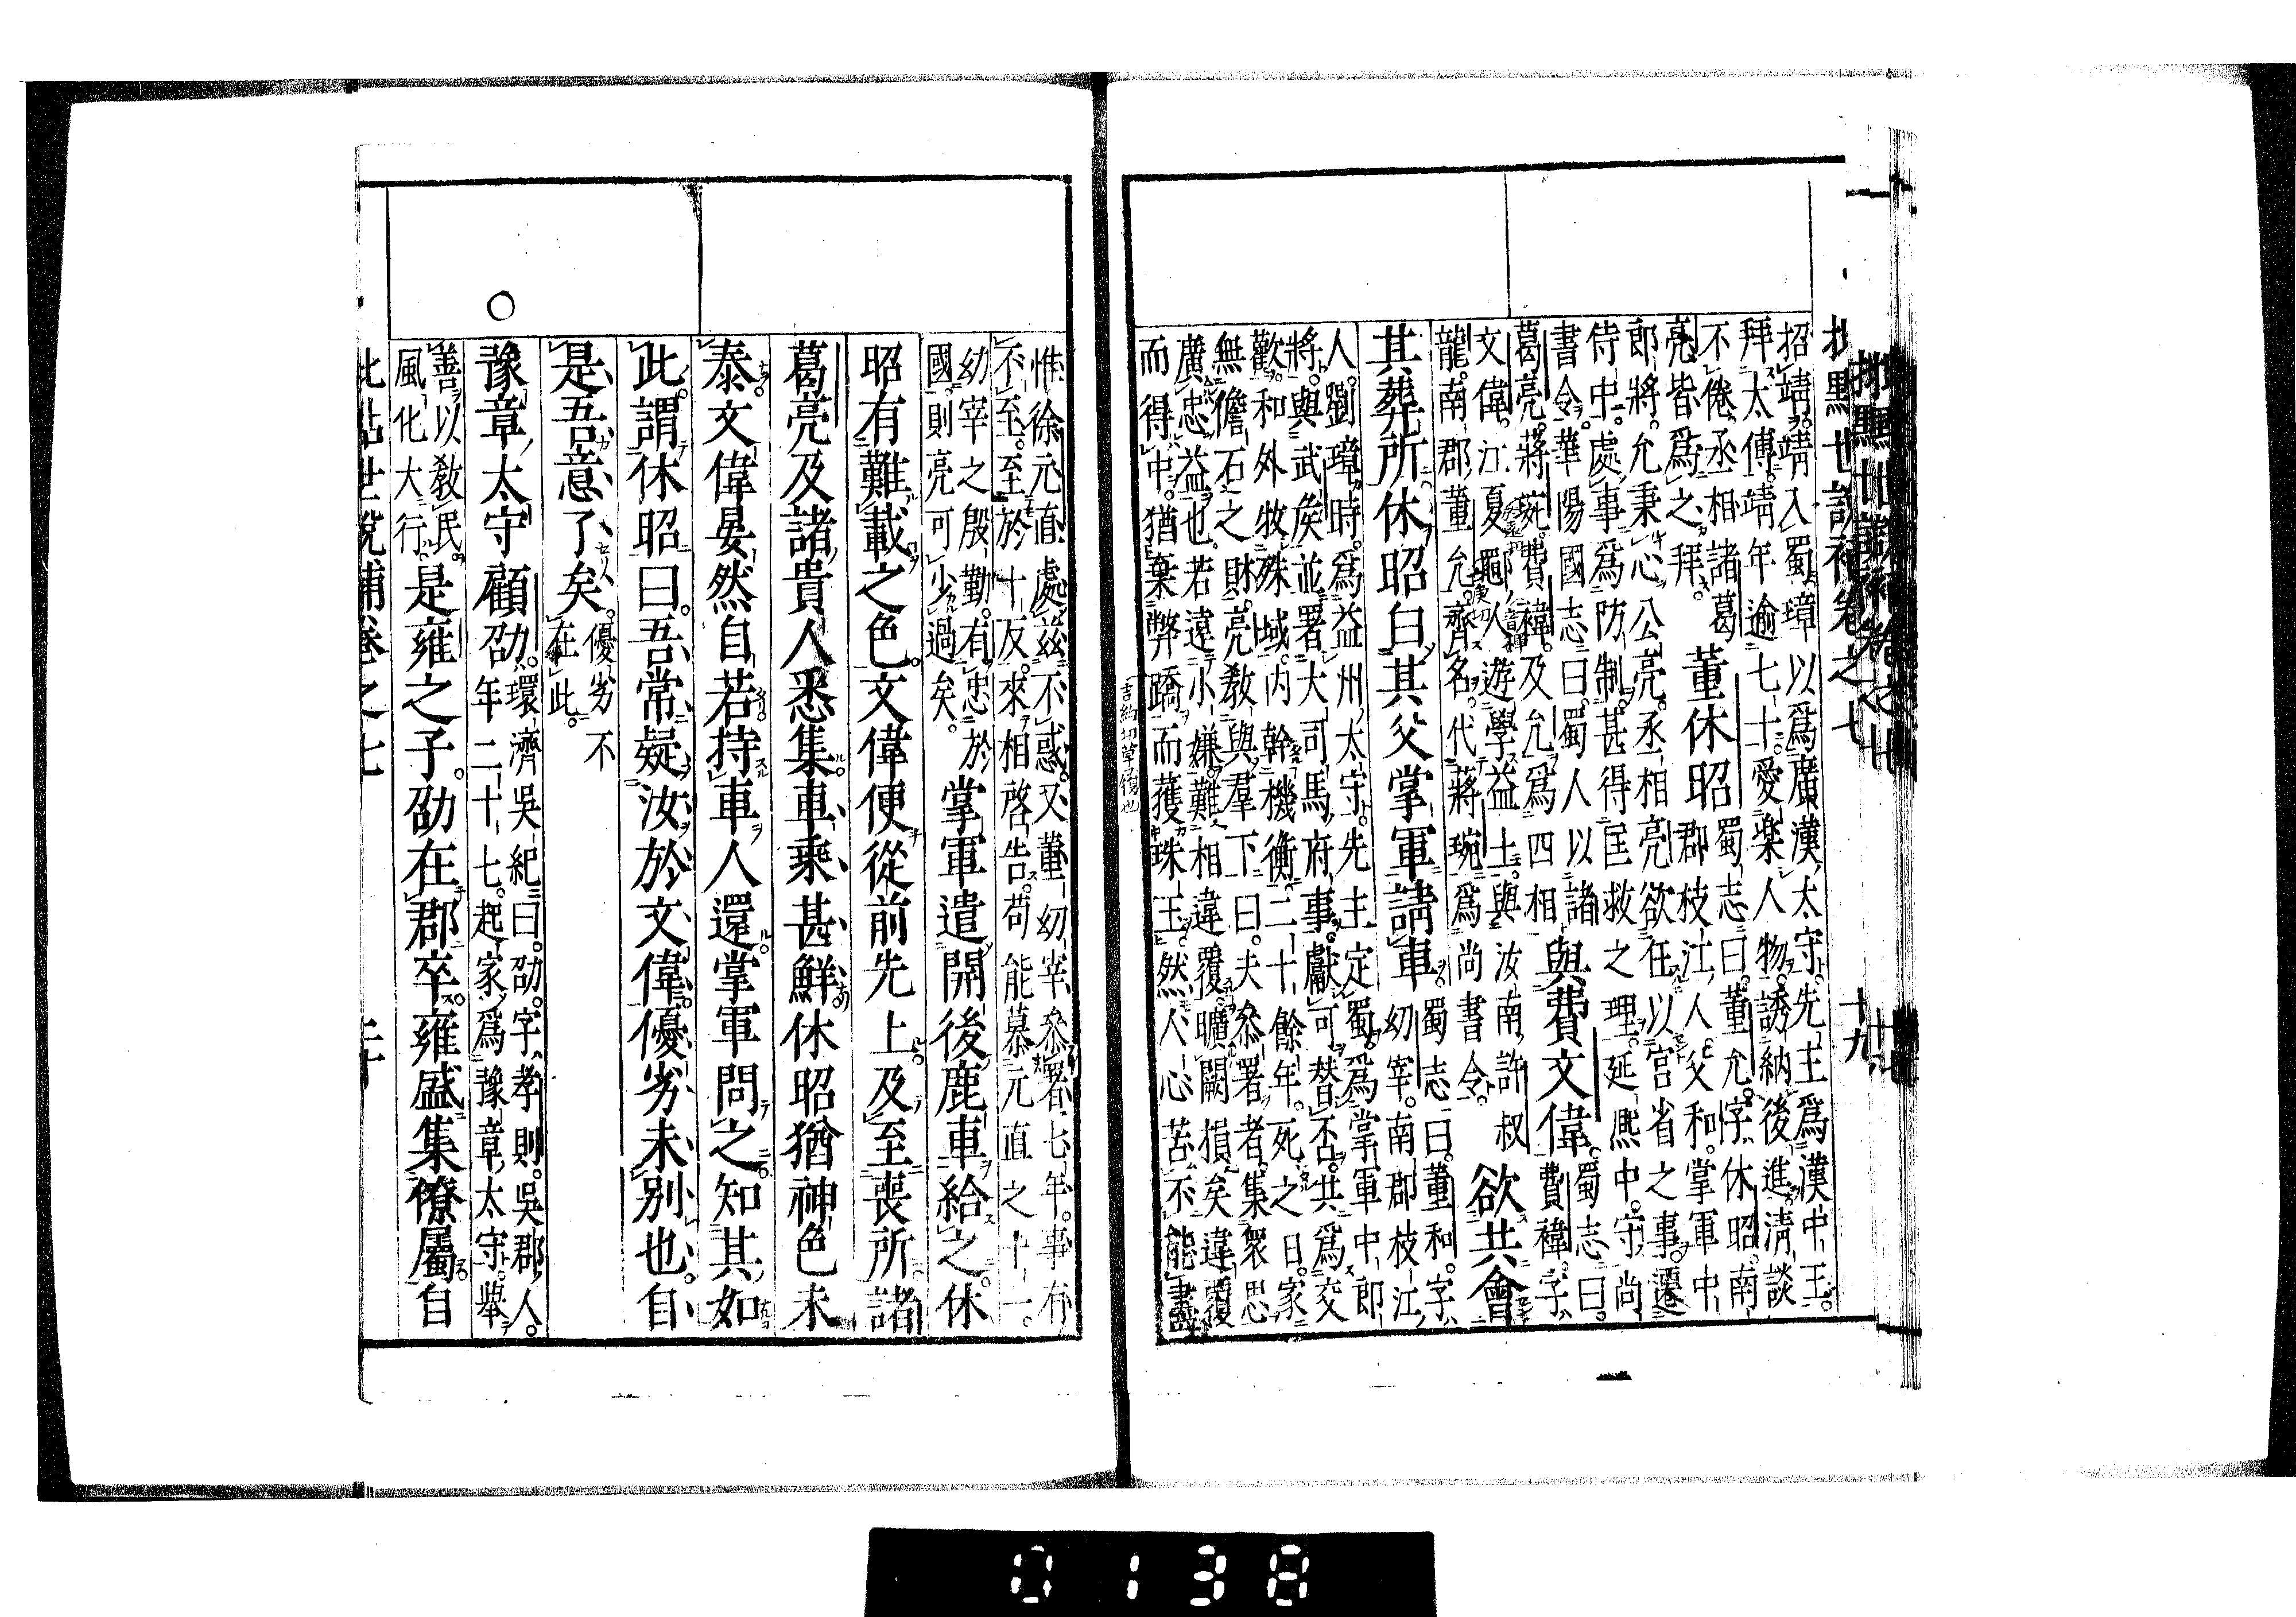 批點世說補卷之七 十九
招靖靖入蜀璋以爲廣漢太守先主爲漢中王
拜太傅靖年逾七十愛樂人物誘納後進清談
不倦丞相諸葛
亮皆爲之拜
董休昭
蜀志曰董允字休昭南
郡枝江人父和掌軍中
郎將允秉心公亮丞相亮欲任以宮省之事遷
侍中處事爲防制甚得匡救之理延熙中守尚
書令華陽國志曰蜀人以諸
葛亮蔣琬費禕及允爲四相
與費文偉
蜀志曰
費禕字
文偉江夏鄳人遊學益土與汝南許叔
龍南郡董允齊名代蔣琬爲尚書令
欲共會
其葬所休昭白其父掌軍請車
蜀志曰董和字
幼宰南郡枝江
人劉璋時爲益州太守先主定蜀爲掌軍中郎
將與武侯並署大司馬府事獻可替否共爲交
歡和外牧殊域内幹機衡二十餘年死之日家
無儋石之財亮教與羣下曰夫參署者集衆思
廣忠益也若遠小嫌難相違覆曠闕損矣違覆
而得中猶棄弊蹻而獲珠玉然人心苦不能盡
吉約切草履也
惟徐元直處茲不惑又董幼宰參署七年事有
不至至於十反來相啓告苟能慕元直之十一
幼宰之殷勤有忠於
國則亮可少過矣
掌軍遣開後鹿車給之休
昭有難載之色文偉便從前先上及至喪所諸
葛亮及諸貴人悉集車乘甚鮮休昭猶神色未
泰文偉晏然自若持車人還掌軍問之知其如
此謂休昭曰吾常疑汝於文偉優劣未別也自
是吾意了矣
優劣不
在此
豫章太守顧劭
環濟吳紀曰劭字孝則吳郡人
年二十七起家爲豫章太守舉
善以教民
風化大行
是雍之子劭在郡卒雍盛集僚屬自
批點世說補卷之七
0138